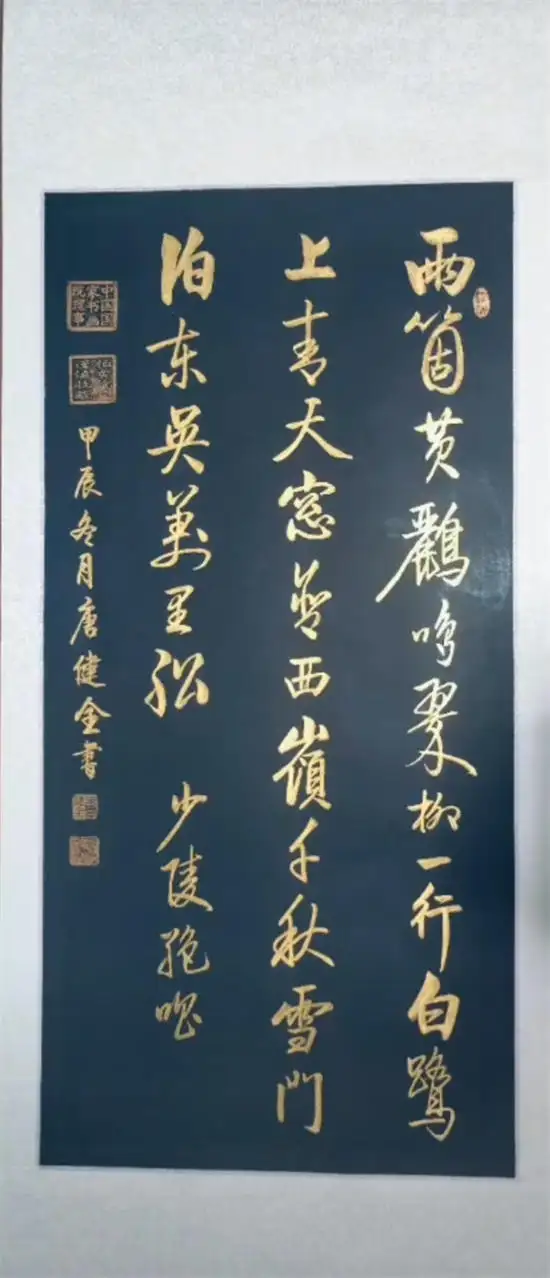 兩箇黄鸝鳴翠柳一行白鷺
上青天窓含西嶺千秋雪門
泊东吳萬里船 少陵絶唱
中国国家书画院理事
甲辰冬月唐健全書